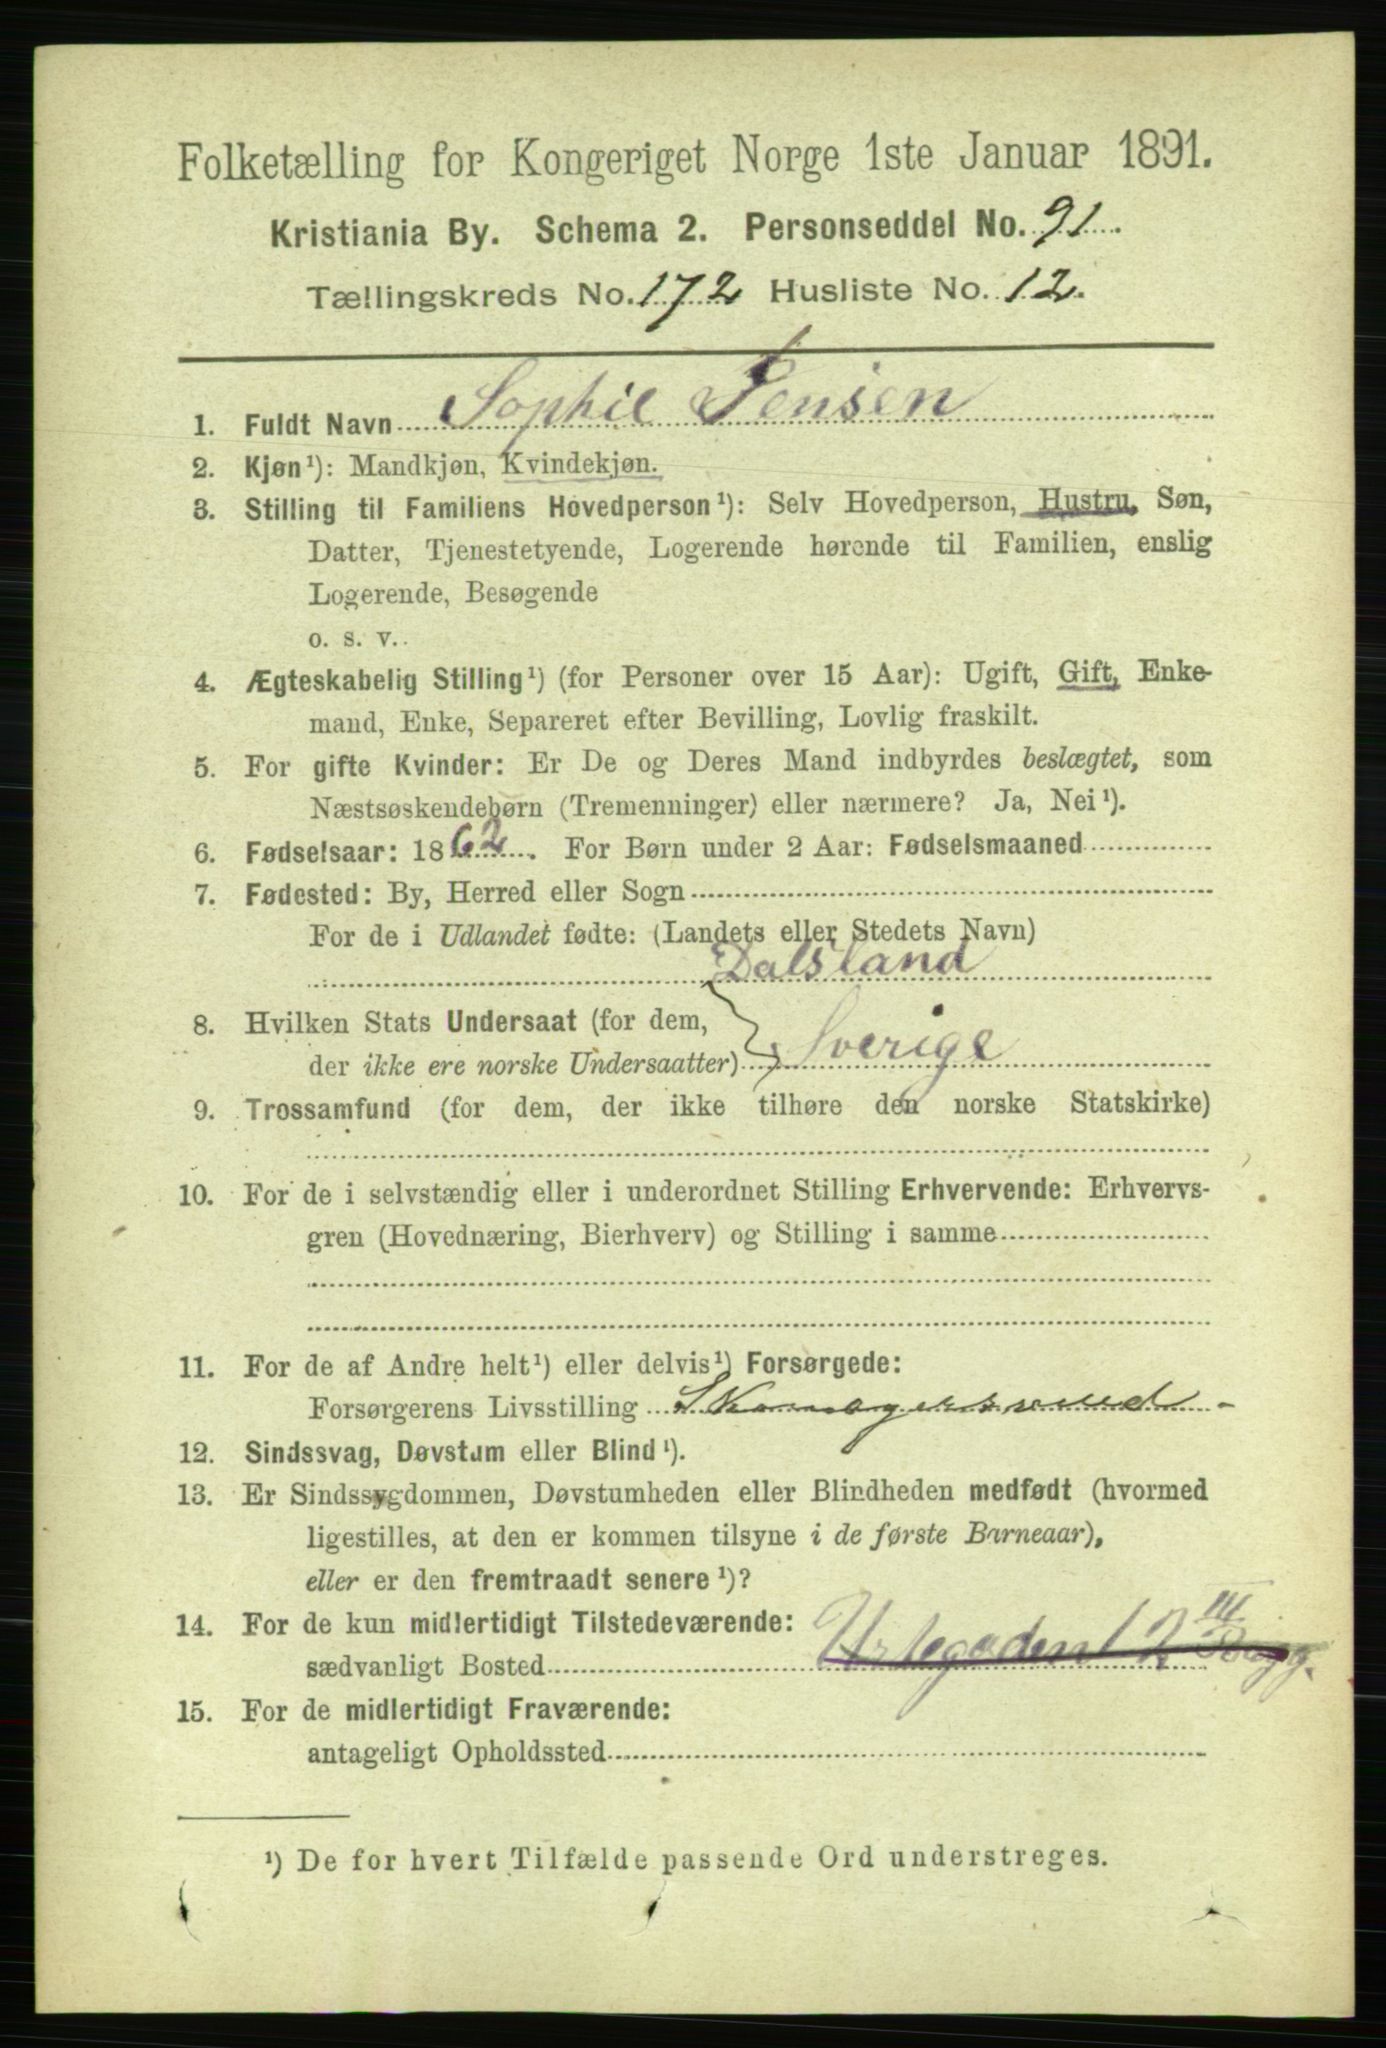 Folketælling for Kongeriget Norge 1ste Januar 1891.
Kristiania By. Schema 2. Personseddel No. 91.
Tællingskreds No. 172 Husliste No. 12.
1. Fuldt Navn Sophie Jensen
2. Kjøn¹): Mandkjøn, Kvindekjøn.
3. Stilling til Familiens Hovedperson¹): Selv Hovedperson, Hustru, Søn,
Datter, Tjenestetyende, Logerende hørende til Familien, enslig
Logerende, Besøgende
o. s. v.
4. Ægteskabelig Stilling¹) (for Personer over 15 Aar): Ugift, Gift, Enke-
mand, Enke, Separeret efter Bevilling, Lovlig fraskilt.
5. For gifte Kvinder: Er De og Deres Mand indbyrdes beslægtet, som
Næstsøskendebørn (Tremenninger) eller nærmere? Ja, Nei¹).
6. Fødselsaar: 1862. For Børn under 2 Aar: Fødselsmaaned
7. Fødested: By, Herred eller Sogn
For de i Udlandet fødte: (Landets eller Stedets Navn)
Dalsland
8. Hvilken Stats Undersaat (for dem,
der ikke ere norske Undersaatter) Sverige
9. Trossamfund (for dem, der ikke tilhøre den norske Statskirke)
10. For de i selvstændig eller i underordnet Stilling Erhvervende: Erhvervs-
gren (Hovednæring, Bierhverv) og Stilling i samme
11. For de af Andre helt¹) eller delvis¹) Forsørgede:
Forsørgerens Livsstilling Skomagersvend
12. Sindssvag, Døvstum eller Blind¹).
13. Er Sindssygdommen, Døvstumheden eller Blindheden medfødt (hvormed
ligestilles, at den er kommen tilsyne i de første Barneaar),
eller er den fremtraadt senere¹)?
14. For de kun midlertidigt Tilstedeværende:
sædvanligt Bosted Urtegaden 12 III Bagg.
15. For de midlertidigt Fraværende:
antageligt Opholdssted
¹) De for hvert Tilfælde passende Ord understreges.